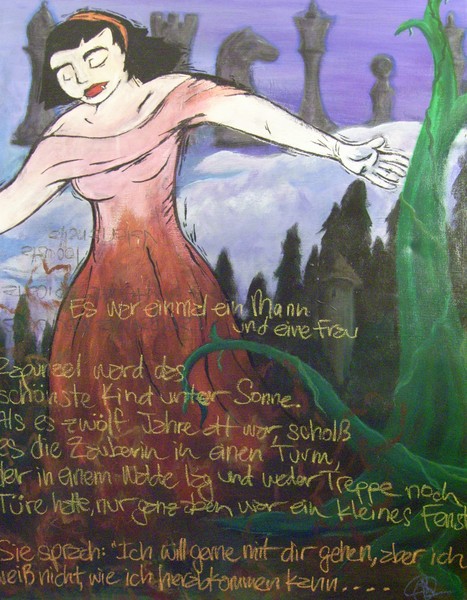 Es war einmal ein Mann
und eine Frau
Rapunzel ward das
schönste Kind unter Sonne.
Als es zwölf Jahre alt war, schloß
es die Zauberin in einen Turm,
der in einem Walde lag und weder Treppe noch
Türe hatte, nur ganz oben war ein kleines Fenst
Sie sprach: "Ich will gerne mit dir gehen, aber ich
weiß nicht, wie ich herabkommen kann....